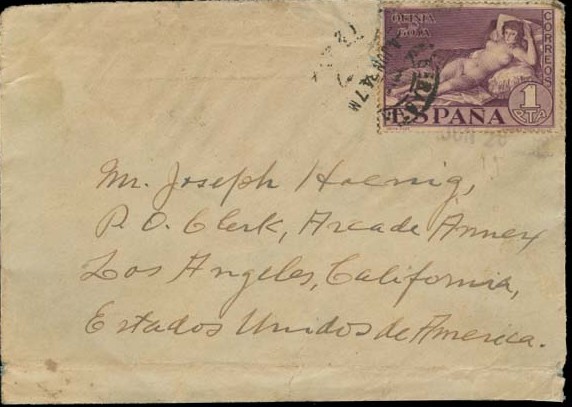 QUINTA
DE
GOYA
CORREOS
1
PTA
ESPAÑA
JUN 26
Mr. Joseph Hoenig,
P. O. Clerk, Arcade Annex
Los Angeles, California,
Estados Unidos de America.